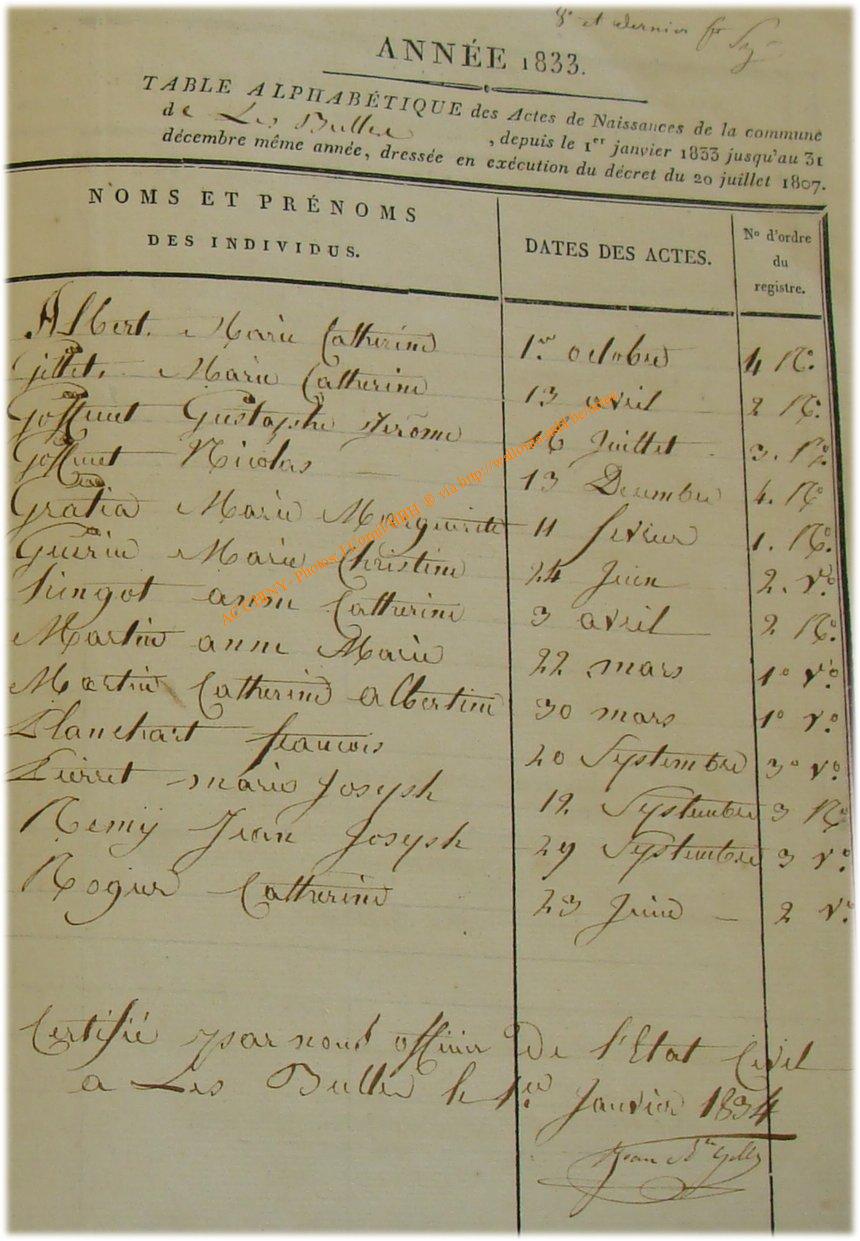 8e et dernier
ANNÉE 1833.
TABLE ALPHABÉTIQUE des Actes de Naissances de la commune
de Les Bulles, depuis le 1er janvier 1833 jusqu'au 31
décembre même année, dressée en exécution du décret du 20 juillet 1807.
NOMS ET PRÉNOMS DES INDIVIDUS. DATES DES ACTES. No d'ordre du registre.
Albert. Marie Catherine 1er octobre 4 Ro
Gillet. Marie Catherine 13 avril 2 Ro
Goffinet Gustaphe Jerôme 16 Juillet 3. Ro
Goffinet Nicolas 13 Decembre 4. Ro
Gratia Marie Marguerite 11 fevrier 1. Ro
Guerin Marie Christine 24 Juin 2. Vo
Lingot anne Catherine 3 avril 2 Ro
Martin anne Marie 22 mars 1o Vo
Martin Catherine albertine 30 mars 1o Vo
Planchart francois 20 Septembre 3o Vo
Pierret marie Joseph 12 Septembre 3 Ro
Remÿ Jean Joseph 29 Septembre 3 Vo
Rogier Catherine 23 Juin 2 Vo
Certifié par nous officier De l'Etat Civil
a Les Bulles le 1er Janvier 1834
ACCHRNY - Photos
via http://